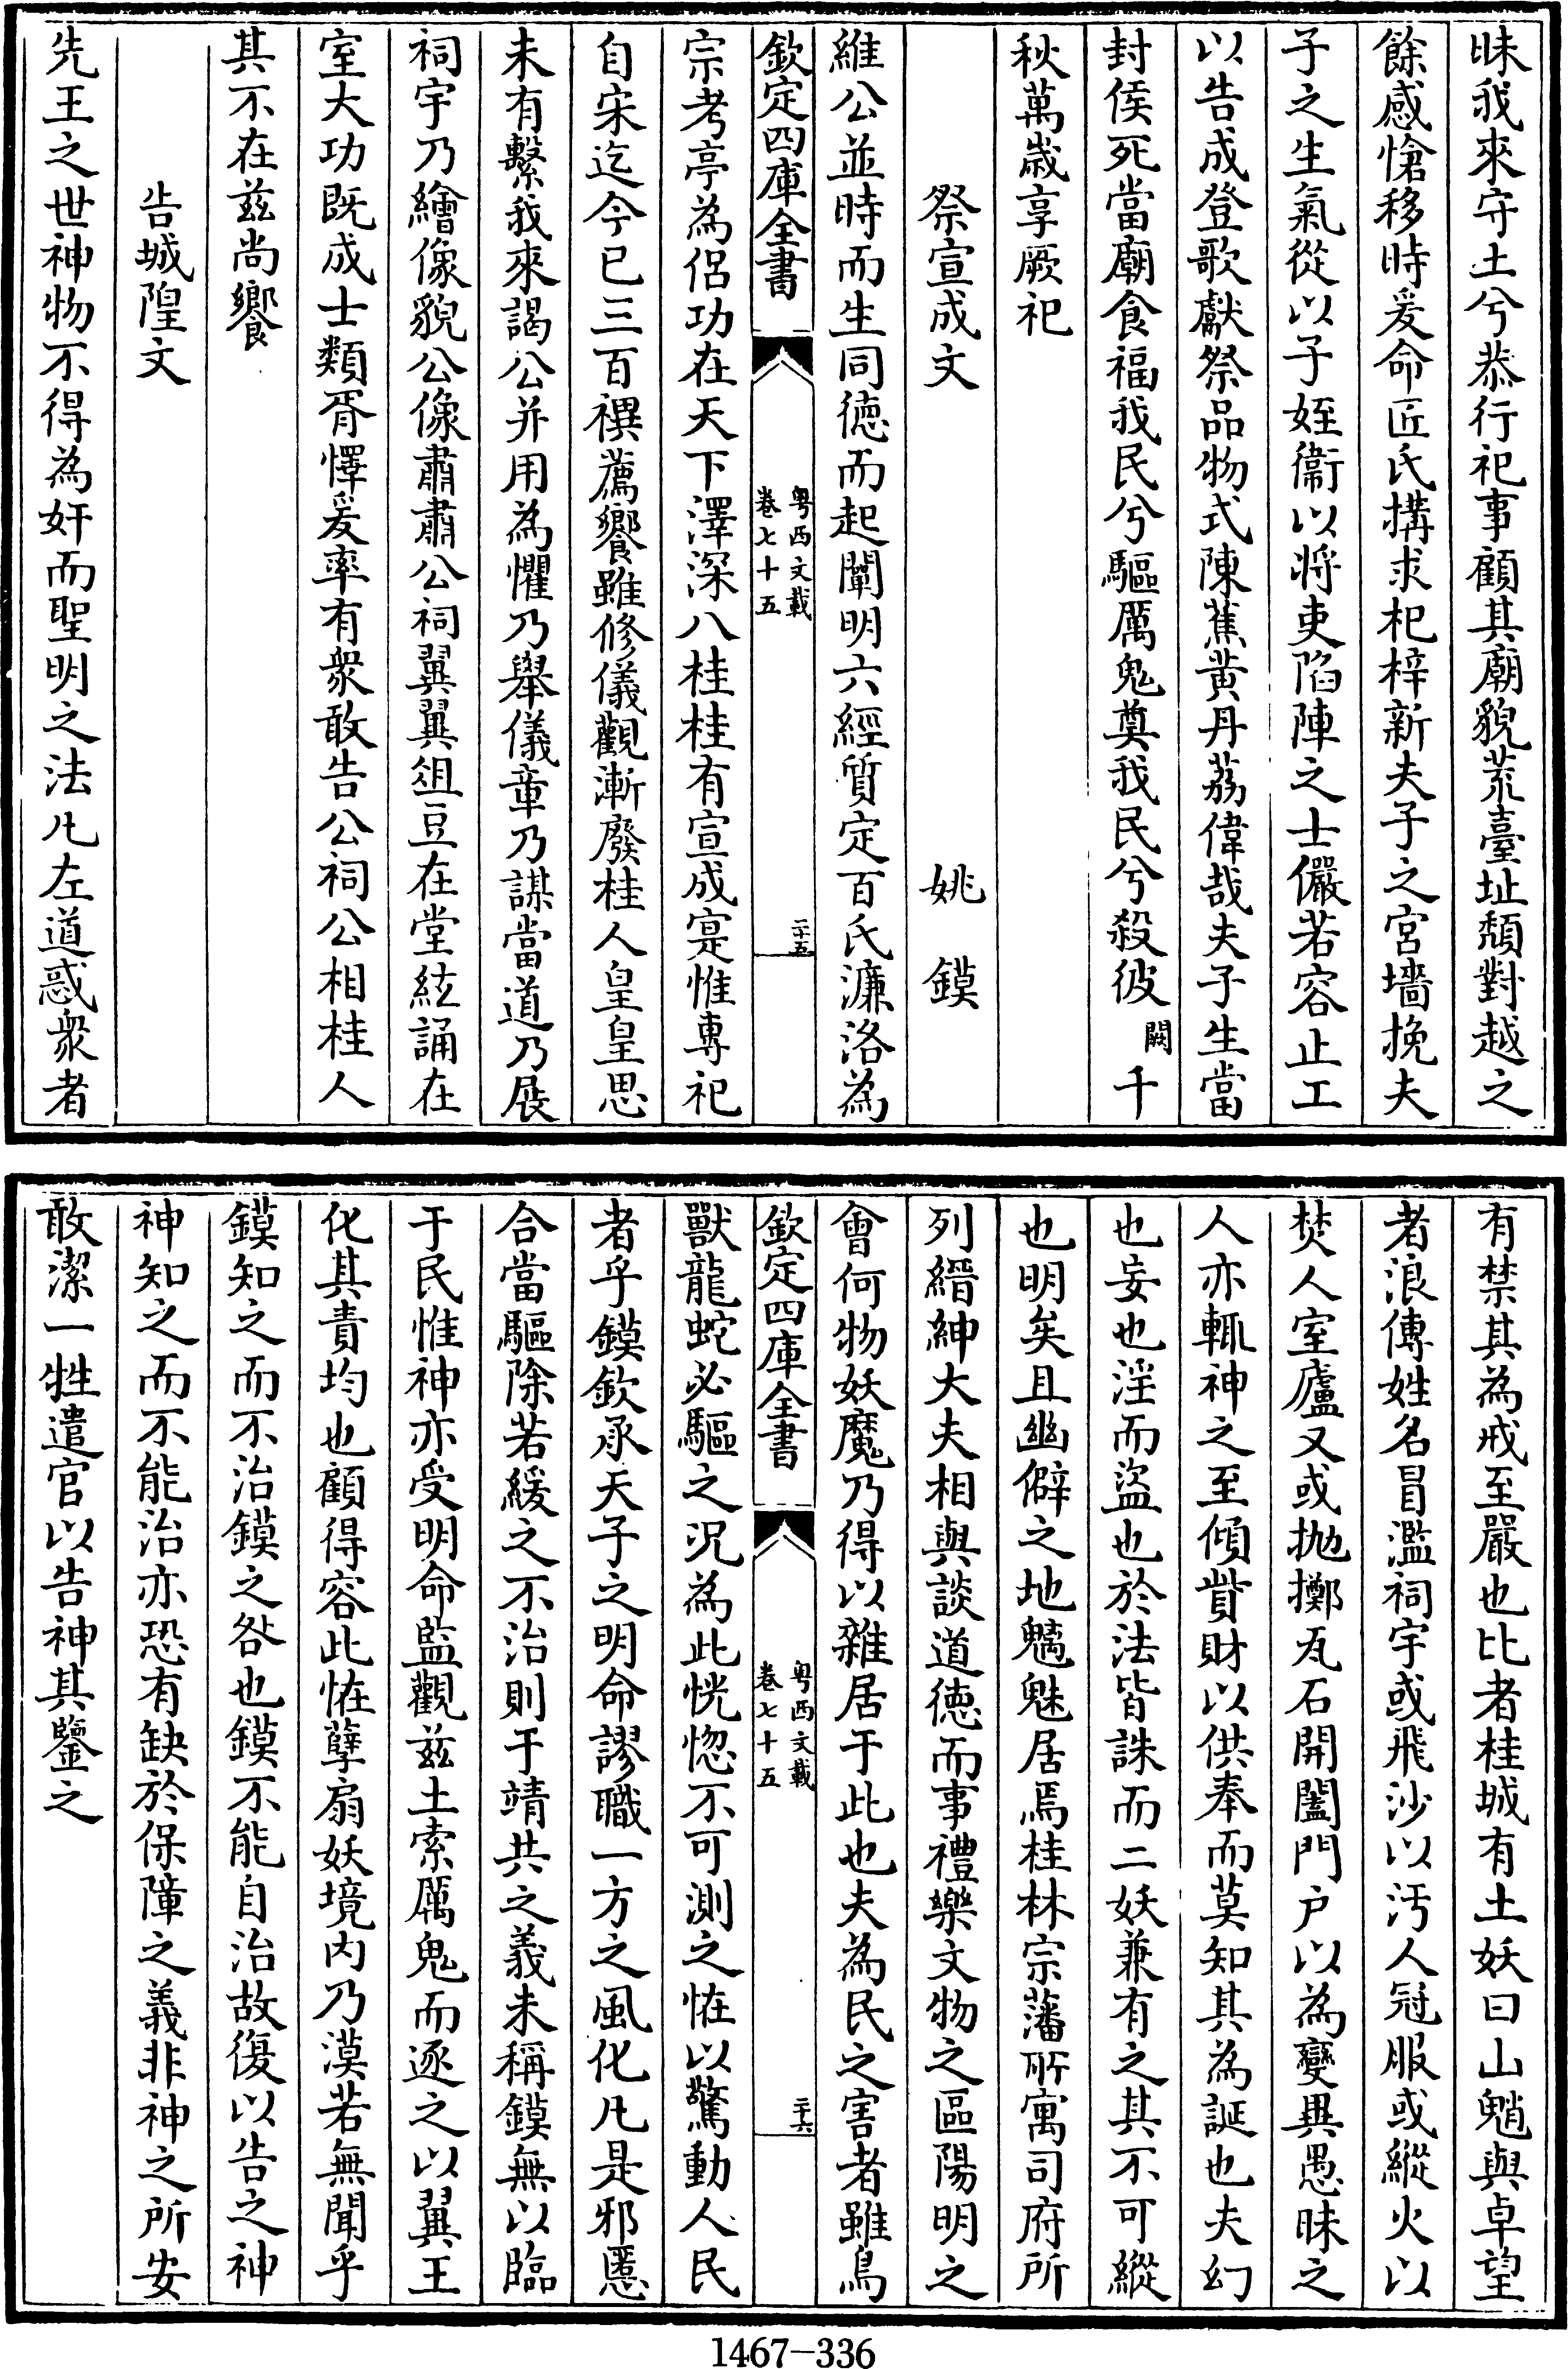 昧我來守土兮恭行祀事顧其廟貌荒臺址頽對越之
餘感愴移時爰命匠氏搆求杞梓新夫子之宮墻挽夫
子之生氣從以子姪衞以將吏陷陣之士儼若容止工
以告成登歌獻祭品物式陳蕉黄丹荔偉哉夫子生當
封侯死當廟食福我民兮驅厲鬼奠我民兮殺彼闕千
秋萬歲享厥祀
祭宣成文 姚鏌
維公並時而生同德而起闡明六經質定百氏濂洛為
欽定四庫全書 粤西文載 卷七十五 二十五
宗考亭為侶功在天下澤深八桂桂有宣成寔惟專祀
自宋迄今已三百禩薦饗雖修儀觀漸廢桂人皇皇思
未有繫我來謁公并用為懼乃舉儀章乃謀當道乃展
祠宇乃繪像貌公像肅肅公祠翼翼俎豆在堂絃誦在
室大功既成士類胥懌爰率有衆敢告公祠公相桂人
其不在兹尚饗
告城隍文
先王之世神物不得為奸而聖明之法凡左道惑衆者
有禁其為戒至嚴也比者桂城有土妖曰山魈與卓望
者浪傳姓名冒濫祠宇或飛沙以汚人冠服或縱火以
焚人室廬又或抛擲瓦石開闔門户以為變異愚昧之
人亦輒神之至傾貲財以供奉而莫知其為誕也夫幻
也妄也淫而盜也於法皆誅而二妖兼有之其不可縱
也明矣且幽僻之地魑魅居焉桂林宗藩所寓司府所
列縉紳大夫相與談道德而事禮樂文物之區陽明之
會何物妖魔乃得以雜居于此也夫為民之害者雖鳥
欽定四庫全書 粤西文載 卷七十五 二十六
獸龍蛇必驅之况為此恍惚不可測之恠以驚動人民
者乎鏌欽承天子之明命謬職一方之風化凡是邪慝
合當驅除若緩之不治則于靖共之義未稱鏌無以臨
于民惟神亦受明命監觀兹土索厲鬼而逐之以翼王
化其責均也顧得容此恠孽扇妖境内乃漠若無聞乎
鏌知之而不治鏌之咎也鏌不能自治故復以告之神
神知之而不能治亦恐有缺於保障之義非神之所安
敢潔一牲遣官以告神其鑒之
1467-336